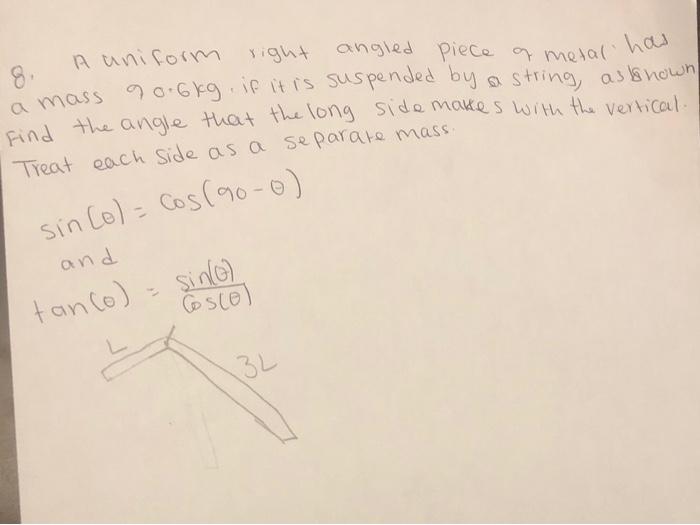 8. A uniform right angled piece of metal has
a mass of 0.6kg. if it is suspended by a string, as shown
Find the angle that the long side makes with the vertical.
Treat each side as a separate mass.
sin(θ) = cos(90-θ)
and
tan(θ) = sin(θ)/cos(θ)
L
3L